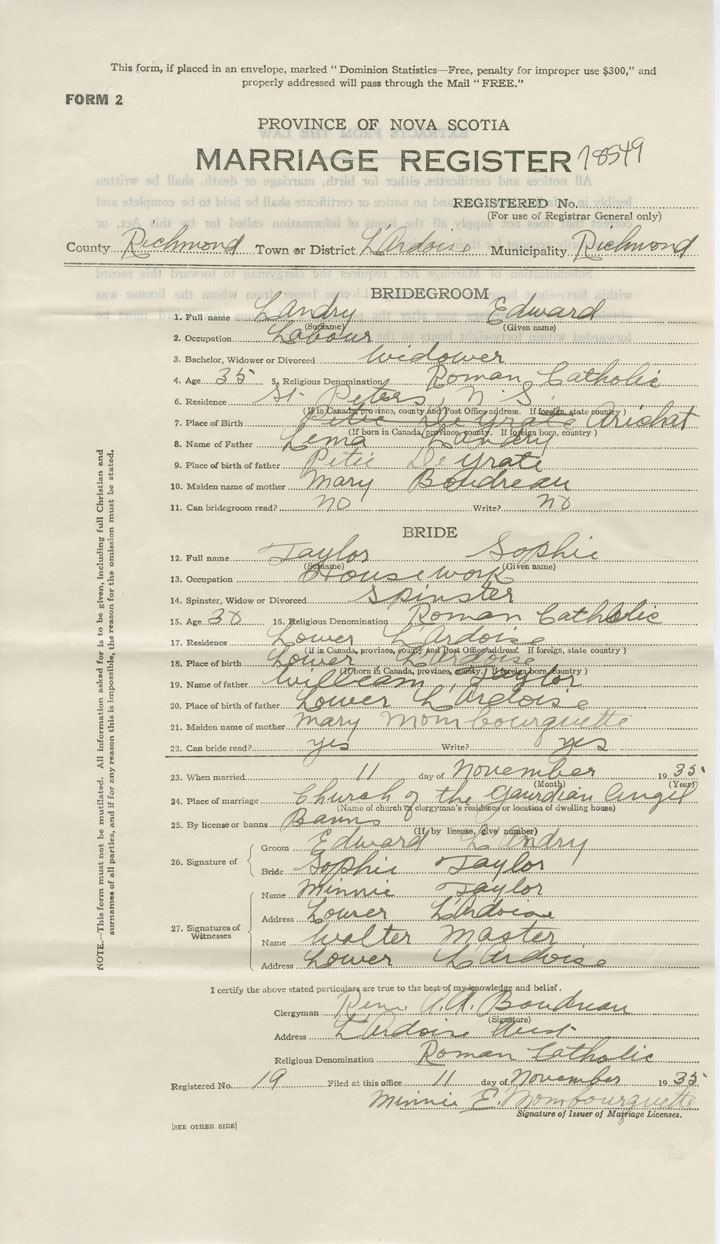 This form, if placed in an envelope, marked "Dominion Statistics—Free, penalty for improper use $300," and
properly addressed will pass through the Mail "FREE."
FORM 2
PROVINCE OF NOVA SCOTIA
MARRIAGE REGISTER 78549
REGISTERED No.
(For use of Registrar General only)
County Richmond Town or District L'Ardoise Municipality Richmond
BRIDEGROOM
1. Full name Landry Edward
(Surname) (Given name)
2. Occupation Labour
3. Bachelor, Widower or Divorced Widower
4. Age 35 5. Religious Denomination Roman Catholic
6. Residence St. Peters, N.S.
(If in Canada, province, county and Post Office address. If foreign, state country)
7. Place of Birth Petie De Grate Arichat
(If born in Canada, province, county. If foreign born, country)
8. Name of Father Lema Landry
9. Place of birth of father Petie De Grate
10. Maiden name of mother Mary Boudreau
11. Can bridegroom read? no Write? no
BRIDE
12. Full name Taylor Sophie
(Surname) (Given name)
13. Occupation Housework
14. Spinster, Widow or Divorced Spinster
15. Age 30 16. Religious Denomination Roman Catholic
17. Residence Lower L'Ardoise
(If in Canada, province, county and Post Office address. If foreign, state country)
18. Place of birth Lower L'Ardoise
(If born in Canada, province, county. If foreign born, country)
19. Name of father William Taylor
20. Place of birth of father Lower L'Ardoise
21. Maiden name of mother Mary Mombourquette
22. Can bride read? yes Write? yes
23. When married 11 day of November 1935
(Month) (Year)
24. Place of marriage Church of the Gaurdian Angel
(Name of church or clergyman's residence or location of dwelling house)
25. By license or banns Banns
(If by license, give number)
26. Signature of Groom Edward Landry
Bride Sophie Taylor
27. Signatures of Witnesses
Name Minnie Taylor
Address Lower L'Ardoise
Name Walter Master
Address Lower L'Ardoise
I certify the above stated particulars are true to the best of my knowledge and belief.
Clergyman Rev. A.A. Boudreau
(Signature)
Address L'Ardoise West
Religious Denomination Roman Catholic
Registered No. 19 Filed at this office 11 day of November 1935
Minnie E. Mombourquette
Signature of Issuer of Marriage Licenses.
[SEE OTHER SIDE]
NOTE.—This form must not be mutilated. All information asked for is to be given, including full Christian and
surnames of all parties, and if for any reason this is impossible, the reason for the omission must be stated.